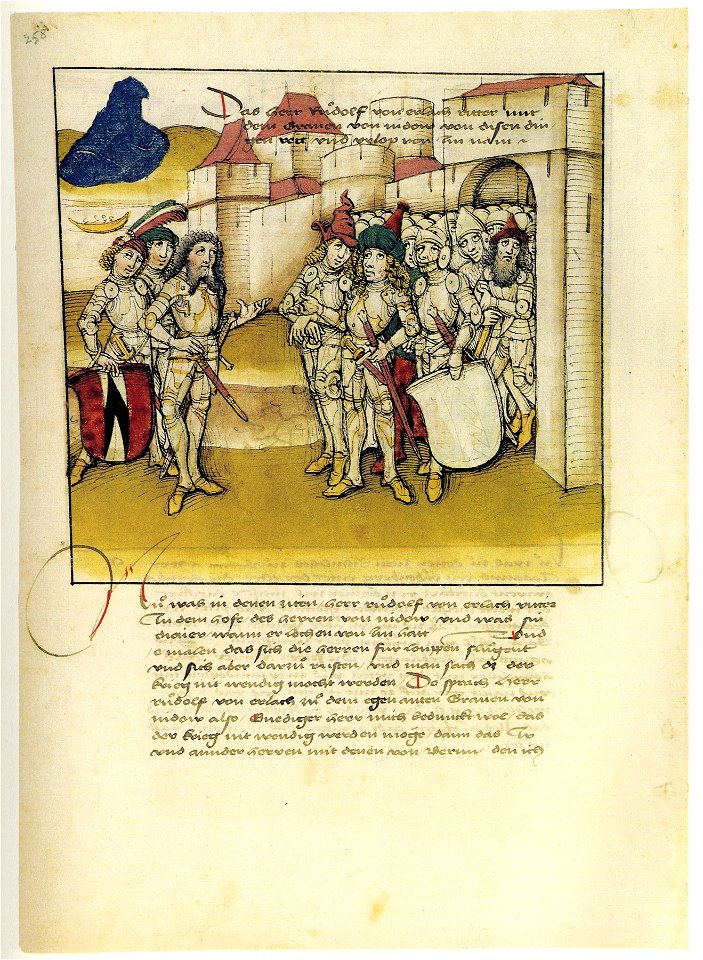 258
Das herr Růdolf von erlach ritter mit
dem Graven von nidow von disen din
gen rett und urlop von im nam
Nů was in denen ziten herr růdolf von erlach ritter
In dem hofe des herren von nidow und was sin
diener wann er lechen von im hatt Und
e malen das sich die herren für louppen slůgent
und sich aber darzů rusten und man sach dz der
krieg nit wendig mocht werden Do sprach herr
růdolf von erlach zů dem egenanten Graven von
nidow also Gnediger herr mich bedunckt wol das
der krieg nit wendig werden möge dann das Ir
und annder herren mit denen von Bernn den ich